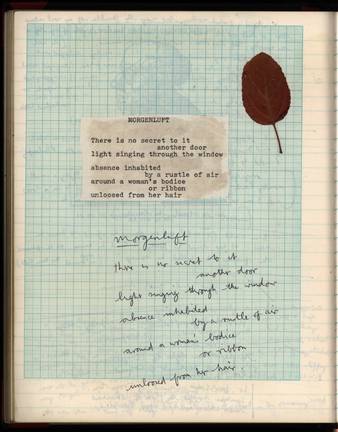 MORGENLUFT
There is no secret to it
another door
light singing through the window
absence inhabited
by a rustle of air
around a woman's bodice
or ribbon
unloosed from her hair
Morgenluft
there is no secret to it
another door
light singing through the window
absence inhabited
by a rustle of air
around a woman's bodice
or ribbon
unloosed from her hair.